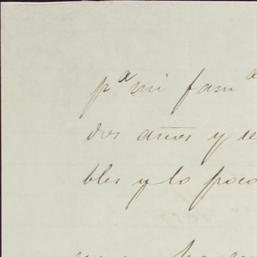 pª mi famª
dos años y se
bles y lo poco